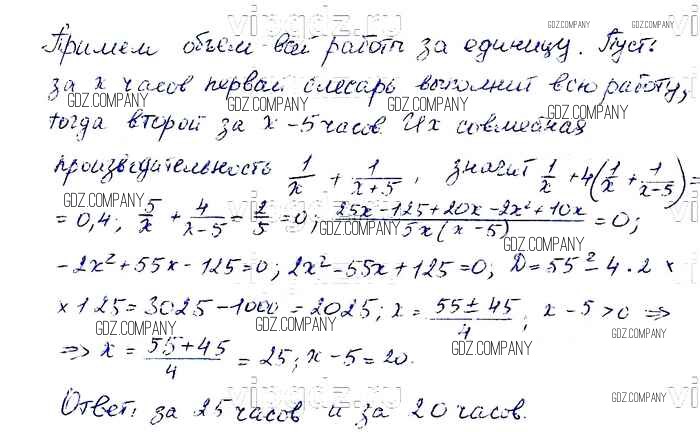 Примем объём всей работы за единицу. Пусть
за x часов первый слесарь выполнит всю работу,
тогда второй за x – 5 часов. Их совместная
производительность 1/x + 1/(x+5), значит 1/x + 4(1/x + 1/(x-5)) =
= 0,4; 5/x + 4/(x-5) - 2/5 = 0; (25x - 125 + 20x - 2x² + 10x)/(5x(x-5)) = 0;
-2x² + 55x - 125 = 0; 2x² - 55x + 125 = 0, D = 55² - 4 · 2 ×
× 125 = 3025 - 1000 = 2025; x = (55 ± 45)/4; x - 5 > 0 ⇒
⇒ x = (55 + 45)/4 = 25; x - 5 = 20.
Ответ: за 25 часов и за 20 часов.